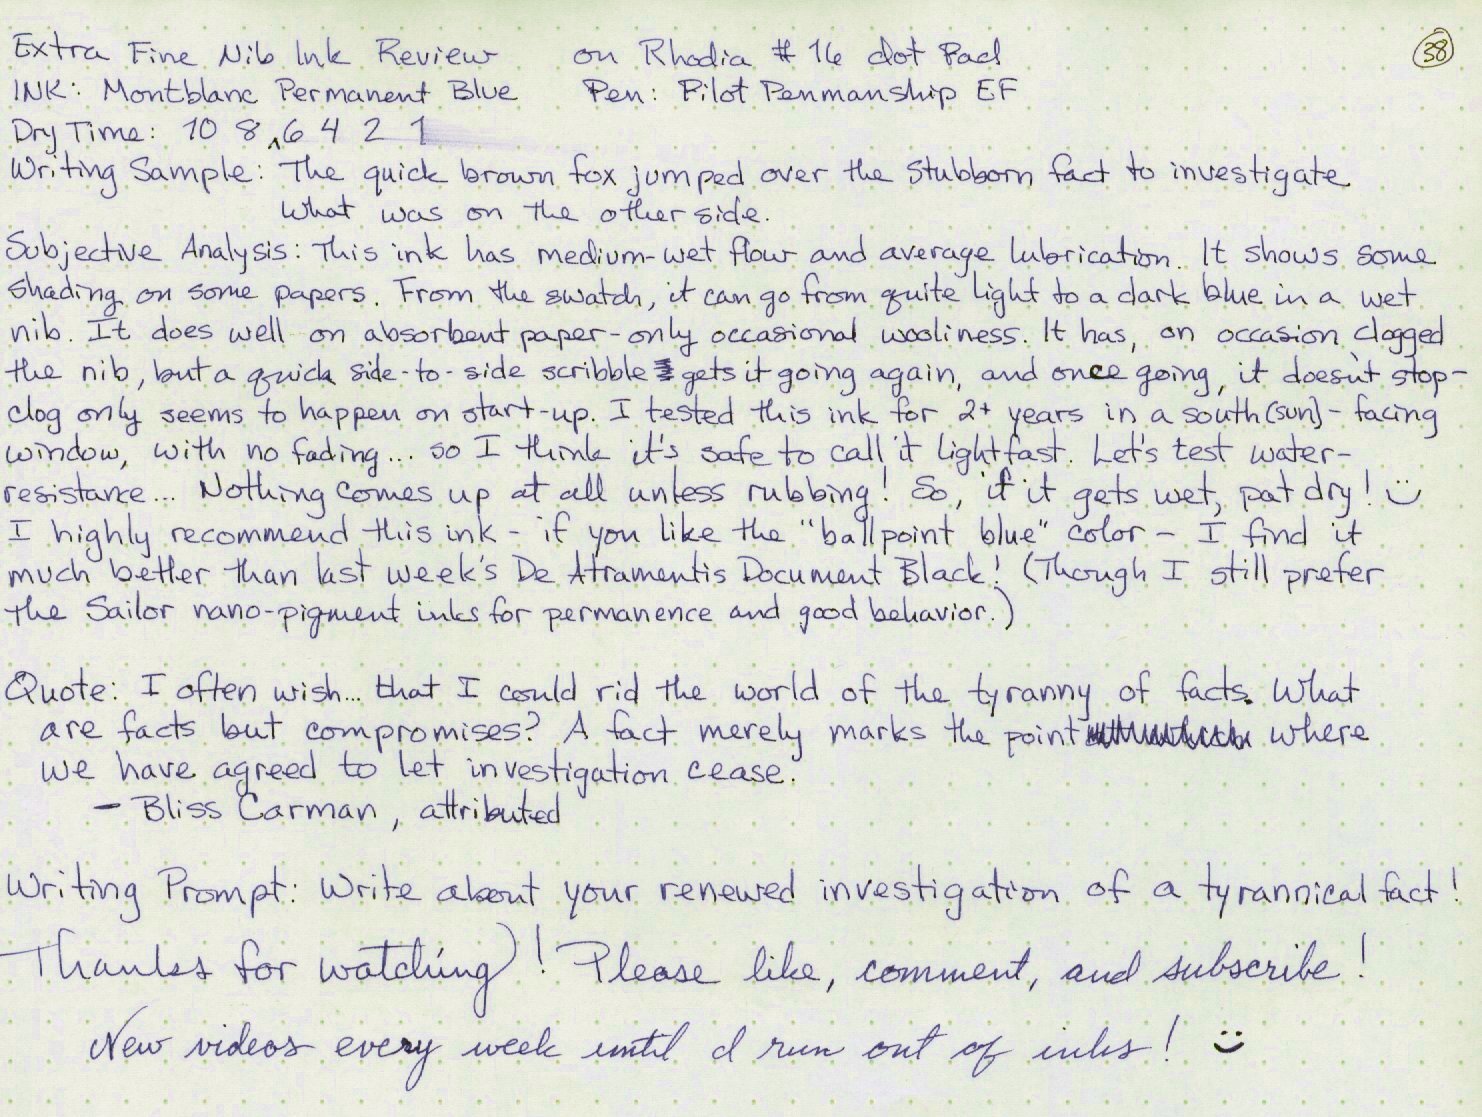 Extra Fine Nib Ink Review on Rhodia #16 dot Pad 38
INK: Montblanc Permanent Blue Pen: Pilot Penmanship EF
Dry Time: 10 8 ^ 6 4 2 1
Writing Sample: The quick brown fox jumped over the stubborn fact to investigate
what was on the other side.
Subjective Analysis: This ink has medium-wet flow and average lubrication. It shows some
shading on some papers. From the swatch, it can go from quite light to a dark blue in a wet
nib. It does well on absorbent paper - only occasional wooliness. It has, on occasion, clogged
the nib, but a quick side-to-side scribble gets it going again, and once going, it doesn't stop -
clog only seems to happen on start-up. I tested this ink for 2+ years in a south (sun) - facing
window, with no fading... so I think it's safe to call it lightfast. Let's test water-
resistance... Nothing comes up at all unless rubbing! So, if it gets wet, pat dry! :)
I highly recommend this ink - if you like the "ballpoint blue" color - I find it
much better than last week's De Atramentis Document Black! (Though I still prefer
the Sailor nano-pigment inks for permanence and good behavior.)
Quote: I often wish... that I could rid the world of the tyranny of facts. What
are facts but compromises? A fact merely marks the point where
we have agreed to let investigation cease.
- Bliss Carman, attributed
Writing Prompt: Write about your renewed investigation of a tyrannical fact!
Thanks for watching! Please like, comment, and subscribe!
New videos every week until I run out of inks! :)